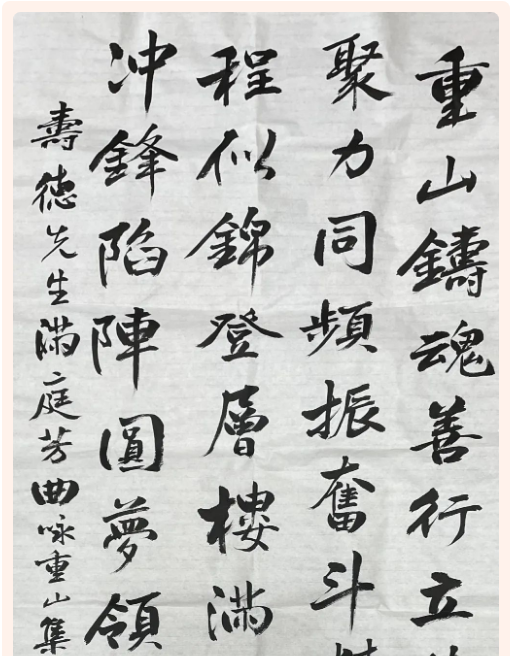 重山鑄魂善行立
聚力同頻振奮斗
程似錦登層樓滿
冲鋒陷陣圓夢領
壽德先生滿庭芳曲咏重山集